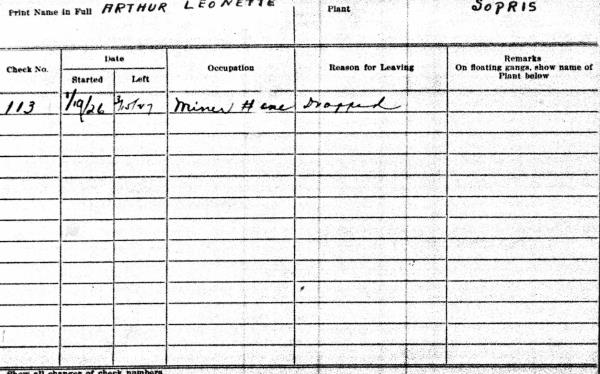 Print Name in Full ARTHUR LEONETTE Plant SOPRIS
Check No. Date Occupation Reason for Leaving Remarks
On floating gangs, show name of
Plant below
Started Left
113 1/19/26 3/15/27 Miner Dropped
Show all changes of check numbers